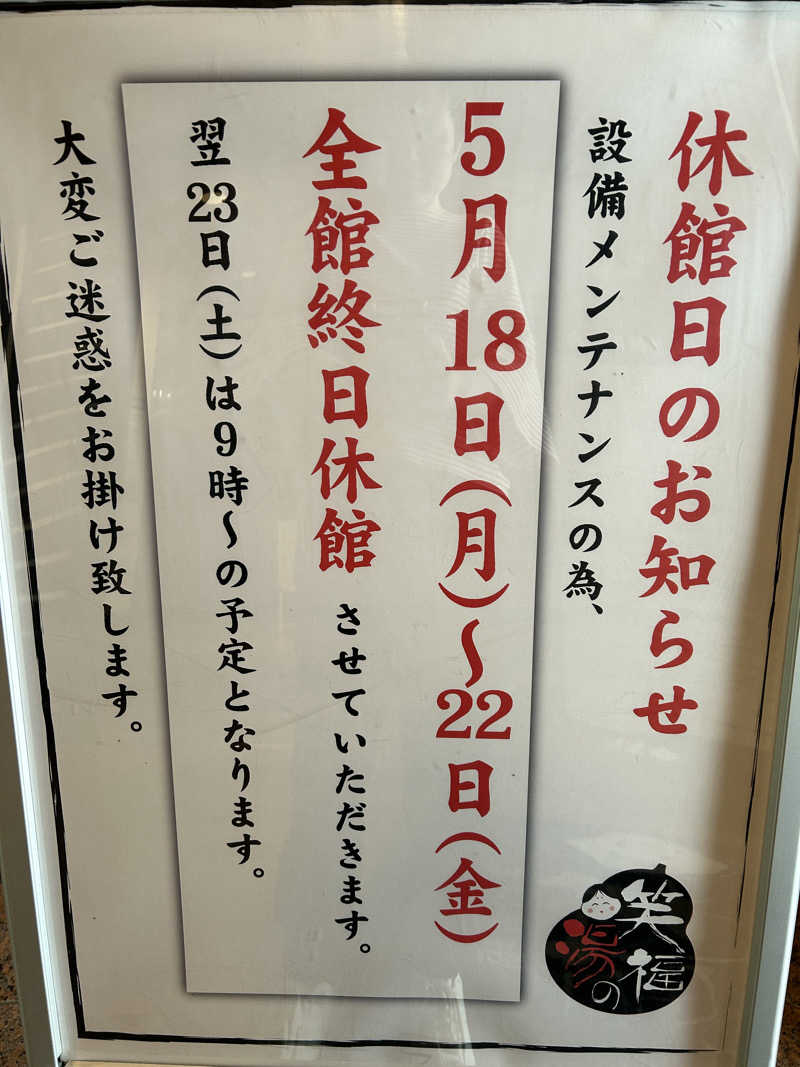 休館日のお知らせ
設備メンテナンスの為、
5月18日(月)～22日(金)
全館終日休館させていただきます。
翌23日(土)は9時～の予定となります。
大変ご迷惑をお掛け致します。
笑福
湯の